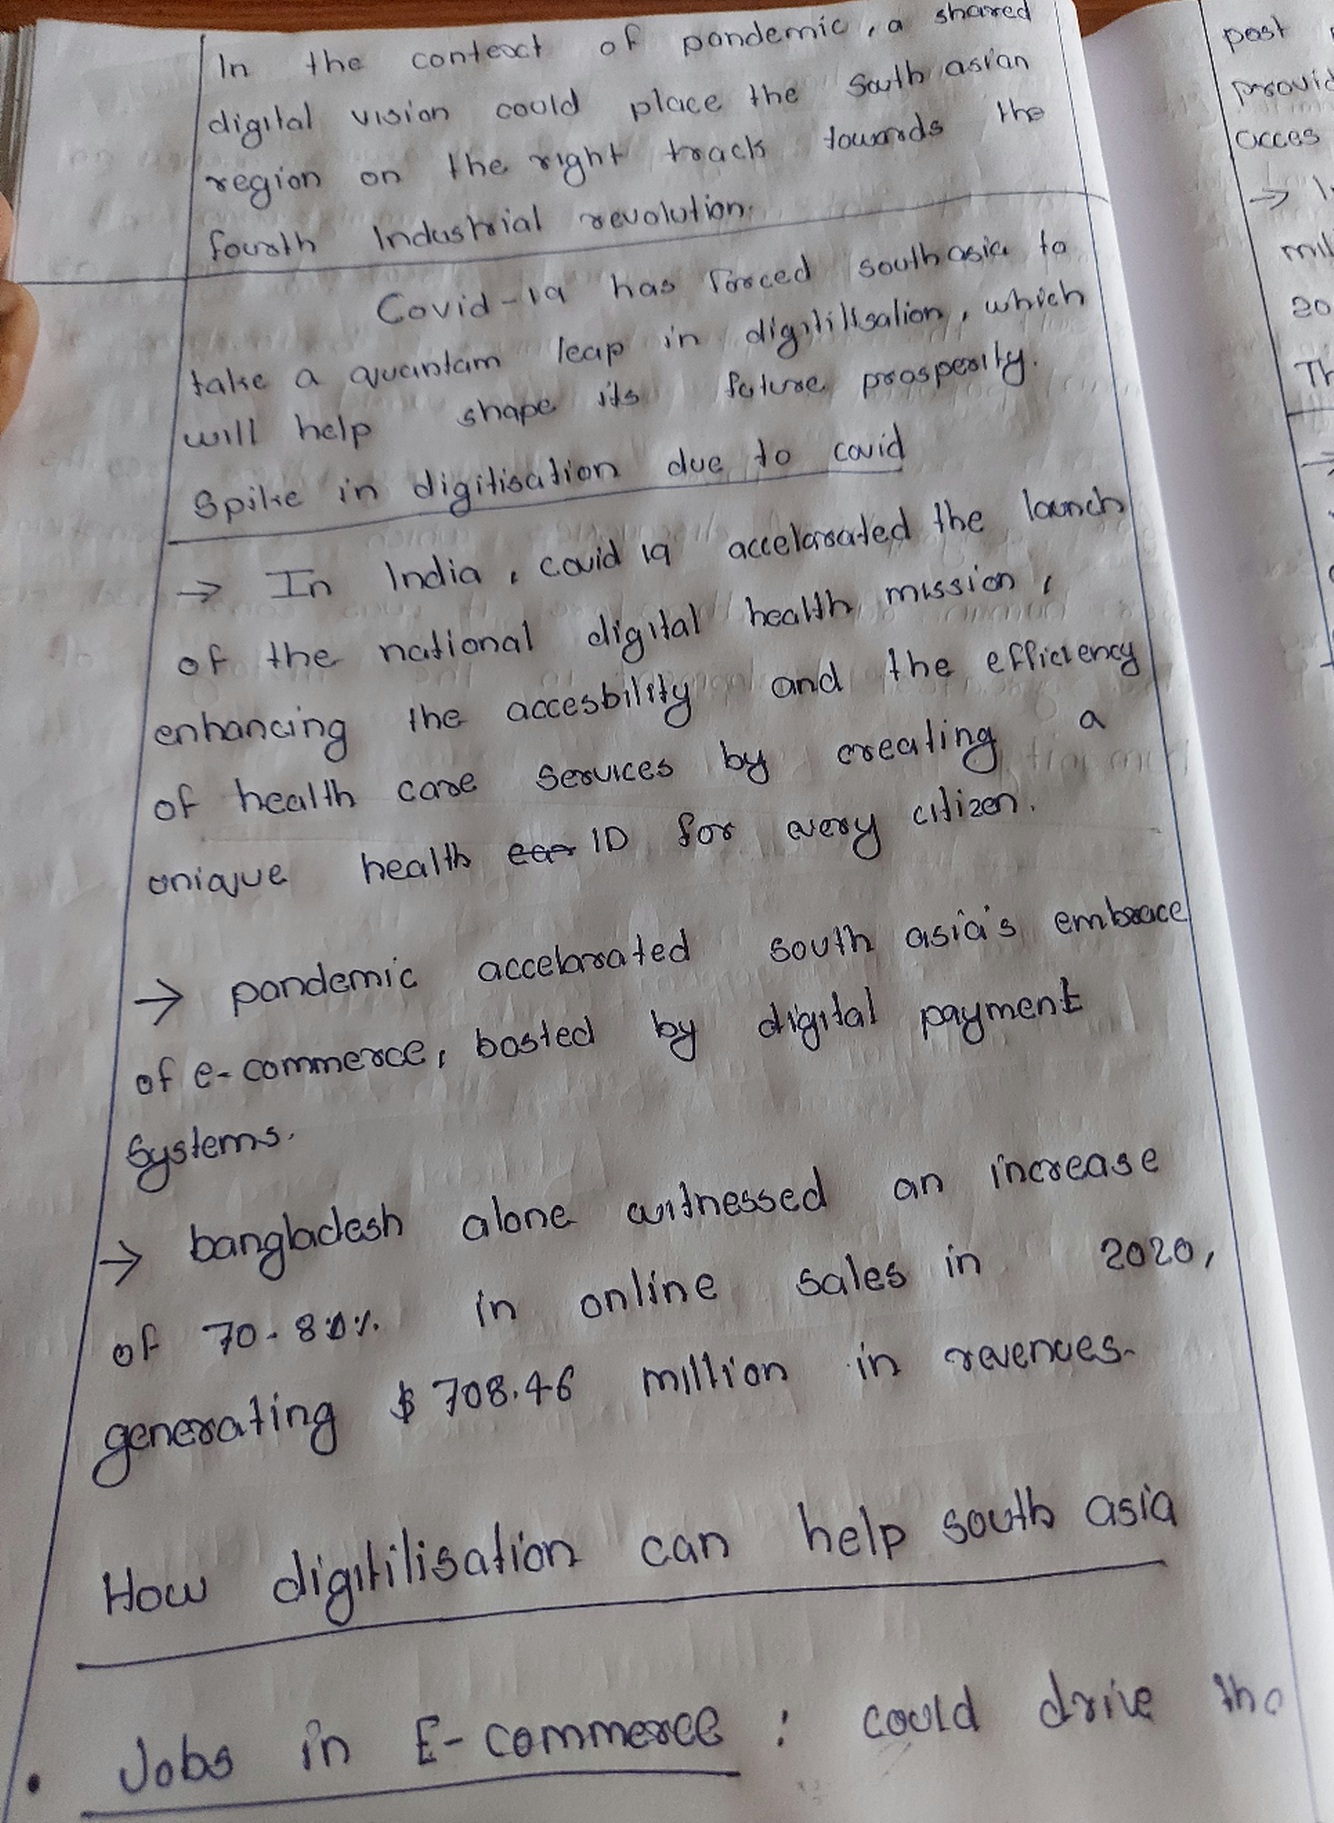 In the context of pandemic, a shared
digital vision could place the South asian
region on the right track towards the
fourth Industrial revolution.
Covid-19 has forced south asia to
take a quantam leap in digitilisation, which
will help shape its future prosperity.
Spike in digitisation due to covid
→ In India, covid 19 accelarated the launch
of the national digital health mission,
enhancing the accesbility and the efficiency
of health care services by creating a
unique health ID for every citizen.
→ pandemic accelarated south asia's embrace
of e-commerce, bosted by digital payment
systems.
→ bangladesh alone witnessed an increase
of 70-80% in online sales in 2020,
generating $ 708.46 million in revenues.
How digitilisation can help south asia
• Jobs in E-commerce : could drive the
post
provid
acces
→ I
mil
20
Th
→